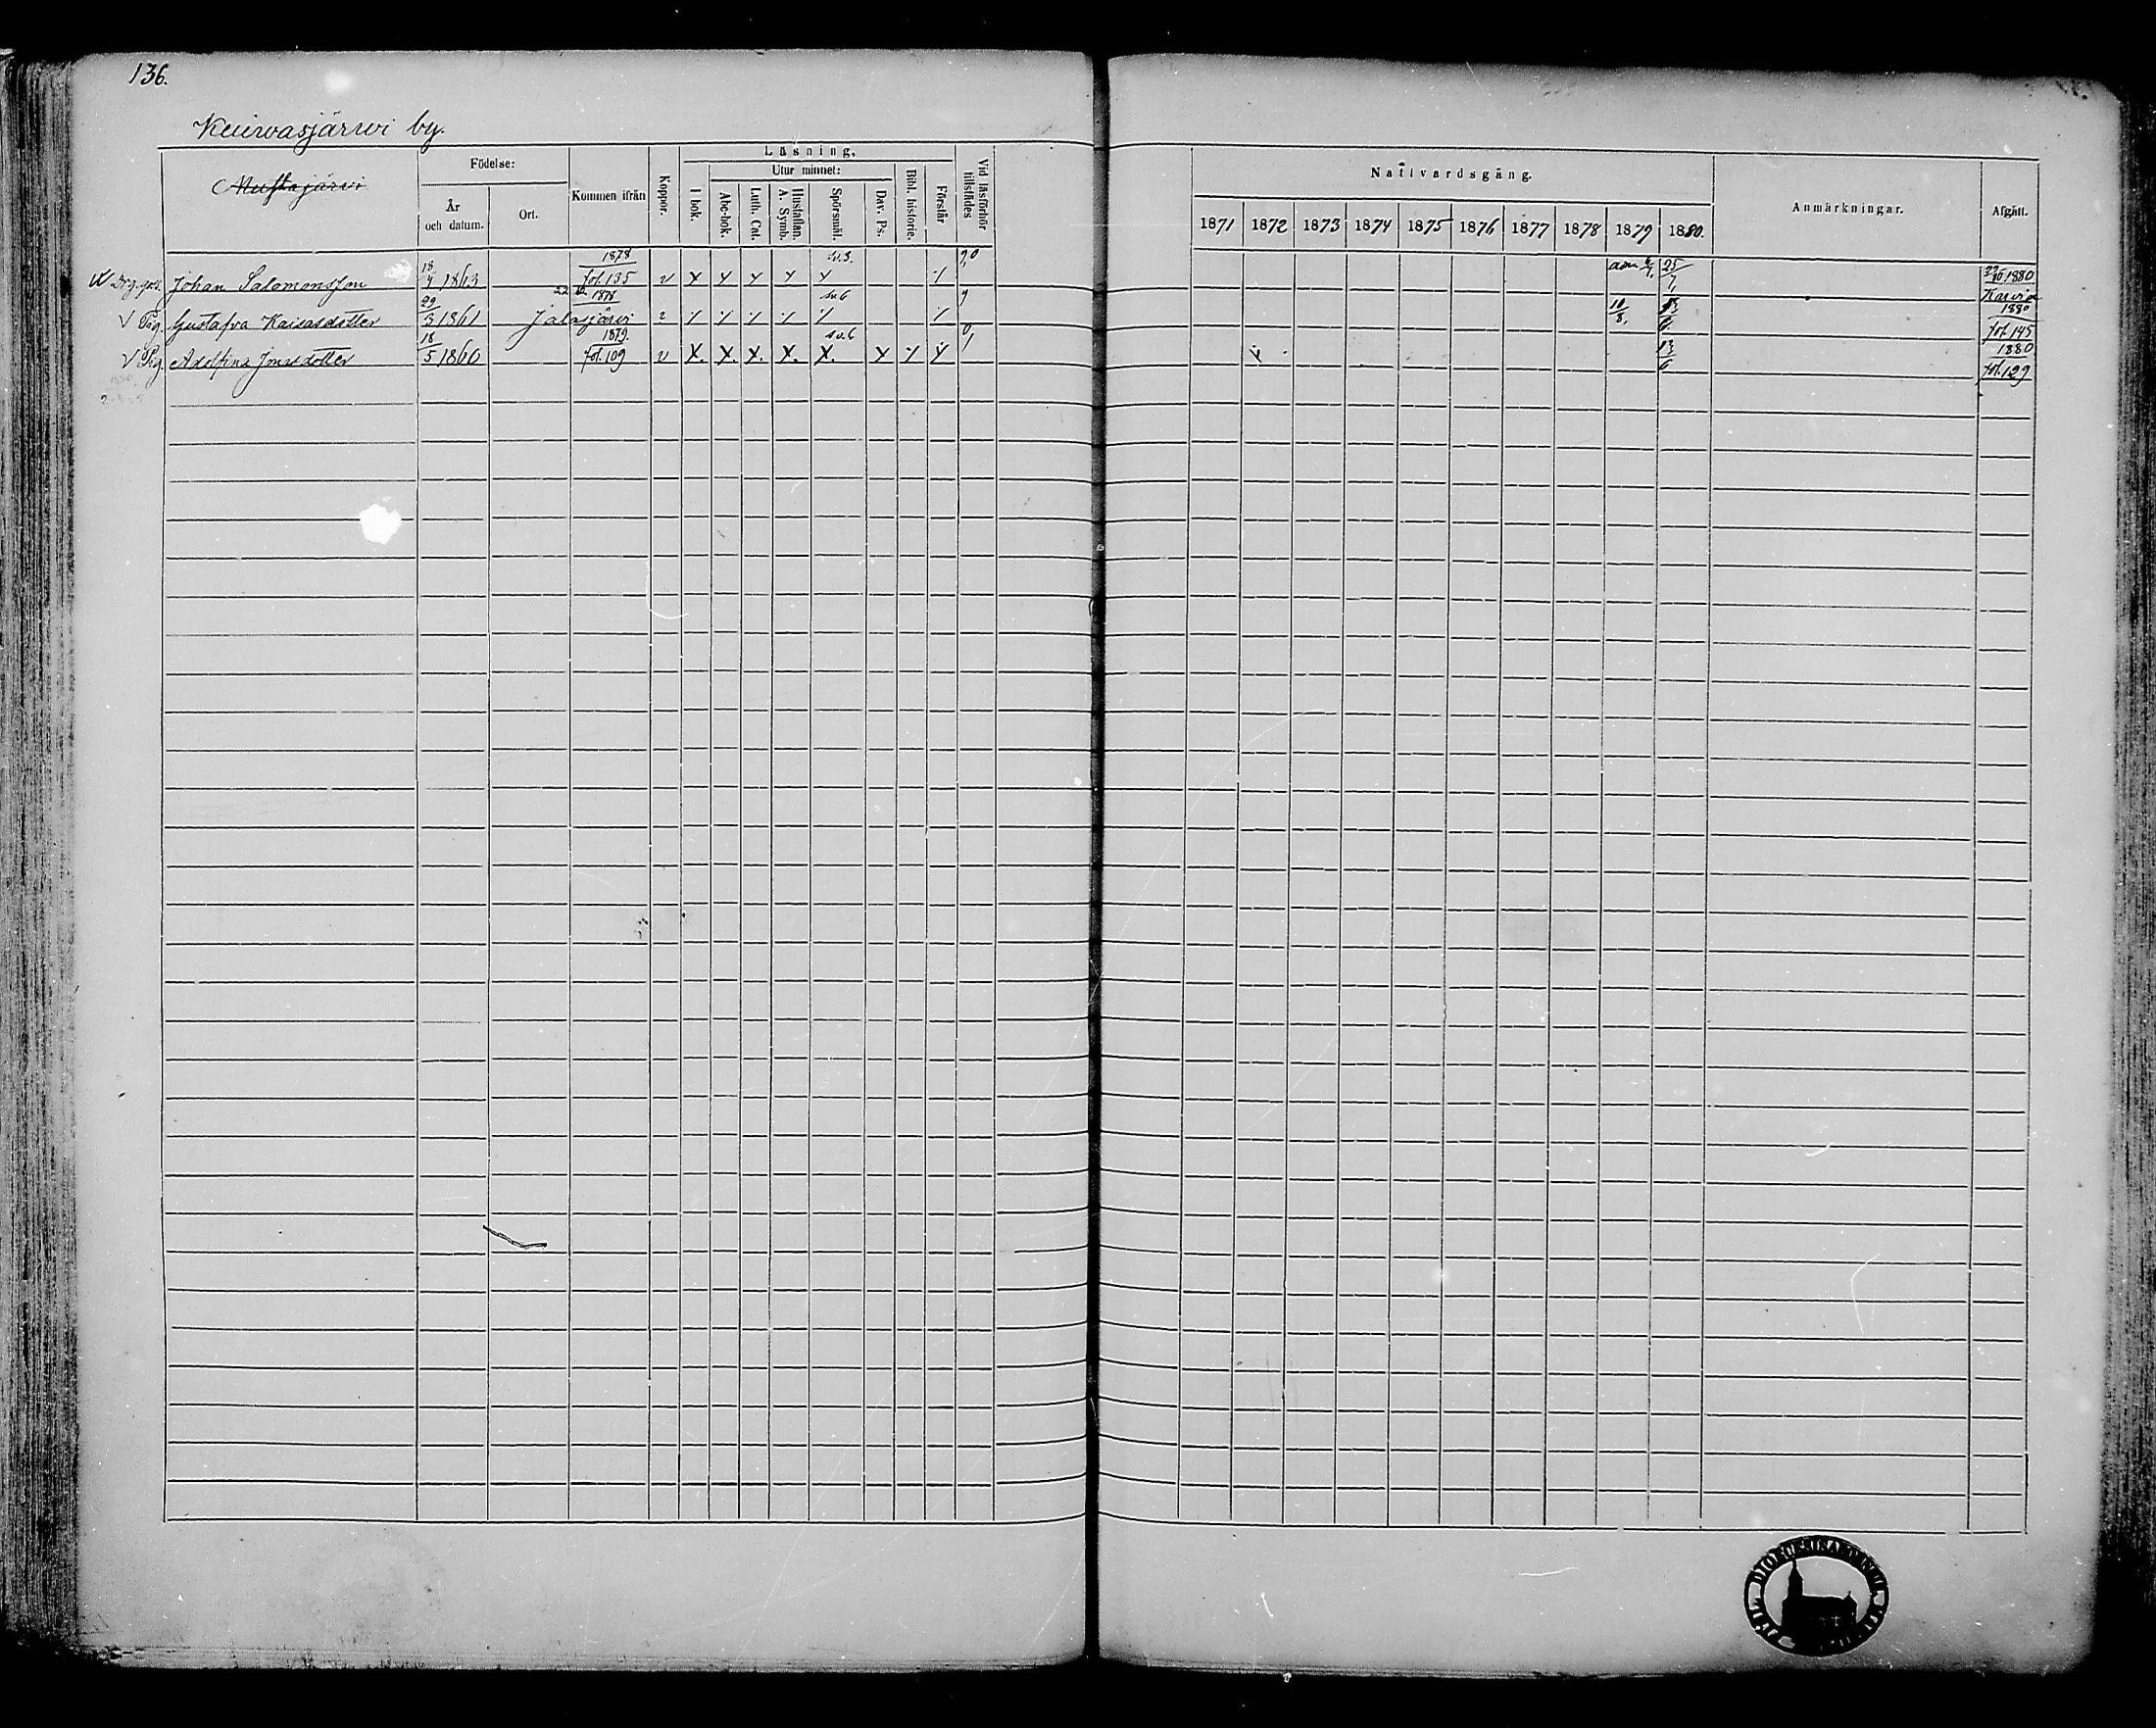 136.
Kuiwasjärwi by.
Mustajärwi
Födelse:
År och datum.
Ort.
Kommen ifrån
Koppor.
Läsning.
I bok.
Utur minnet:
Abc-bok.
Luth. Cat.
Hustaflan. A. Symb.
Spörsmål.
Dav. Ps.
Bibl. historie.
Förstår
Vid läsförhör tillstädes
Nattvardsgång.
1871 1872 1873 1874 1875 1876 1877 1878 1879 1880.
Anmärkningar.
Afgått.
Johan Salomonsson 18/4 1863 1878 fol. 135 v x x x x sv.3. x 9,0 adm 25/7 22/10 1880 Karvia
V Pig. Gustafva Kaisasdotter 29/3 1861 Jalasjärvi 22 1878 sv.6 9 10/8. 1880 fol. 145
V Pig. Adolfina Jonasdotter 18/5 1860 1879. fol. 109 v x. x. x. x. sv.6 x. x 0/1 13/6 1880 fol. 129